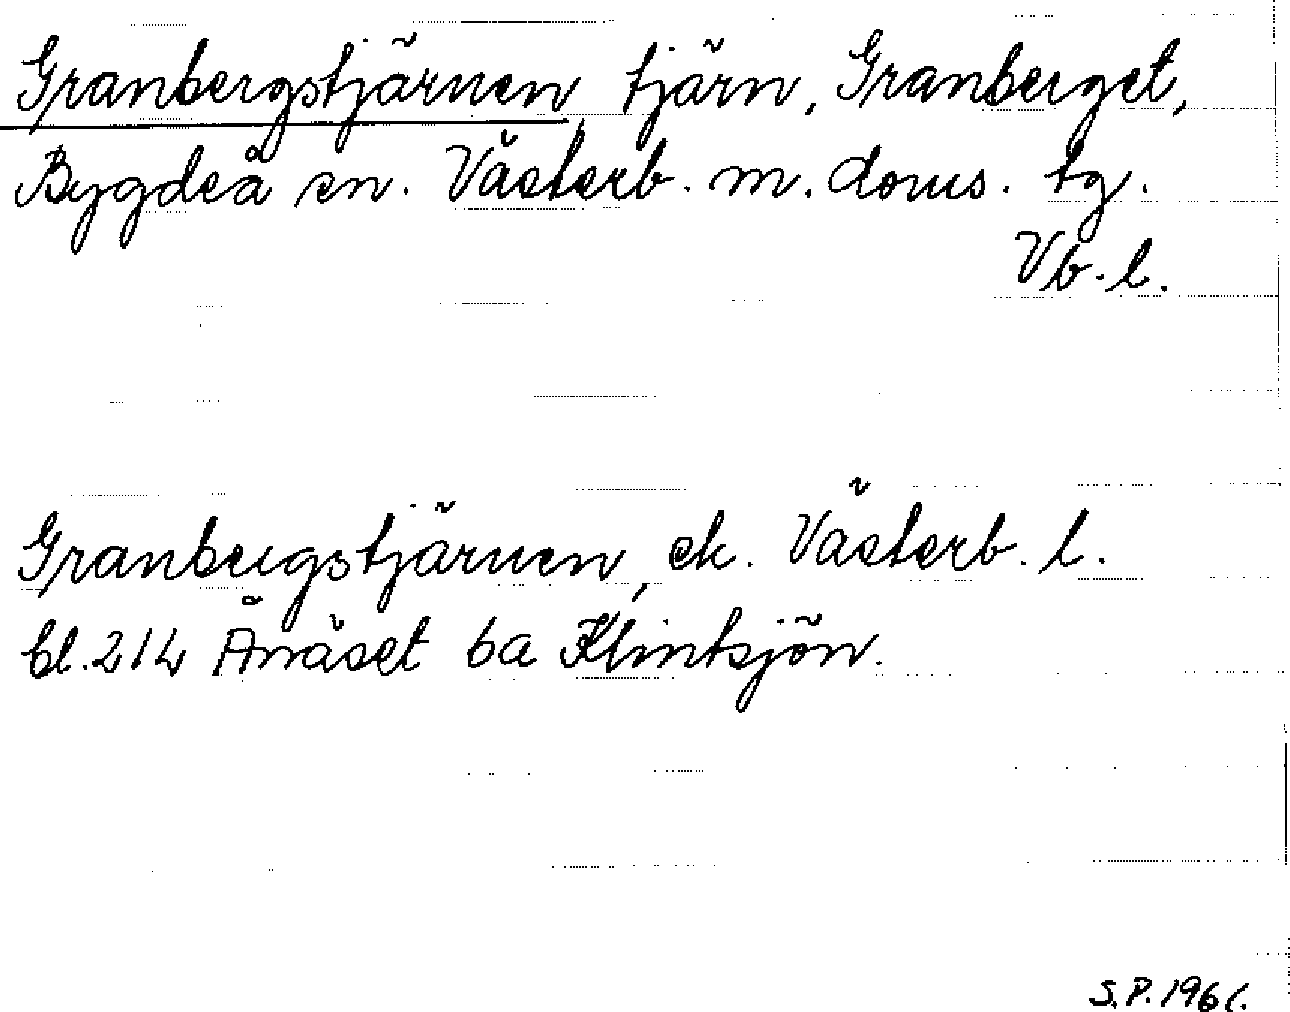 Granbergstjärnen, tjärn, Granberget,
Bygdeå sn. Västerb. m. doms. tg.
Vb. l.
Granbergstjärnen, ek. Västerb. l.
bl. 214 Ånäset 6a Klintsjön.
S.P. 1961.